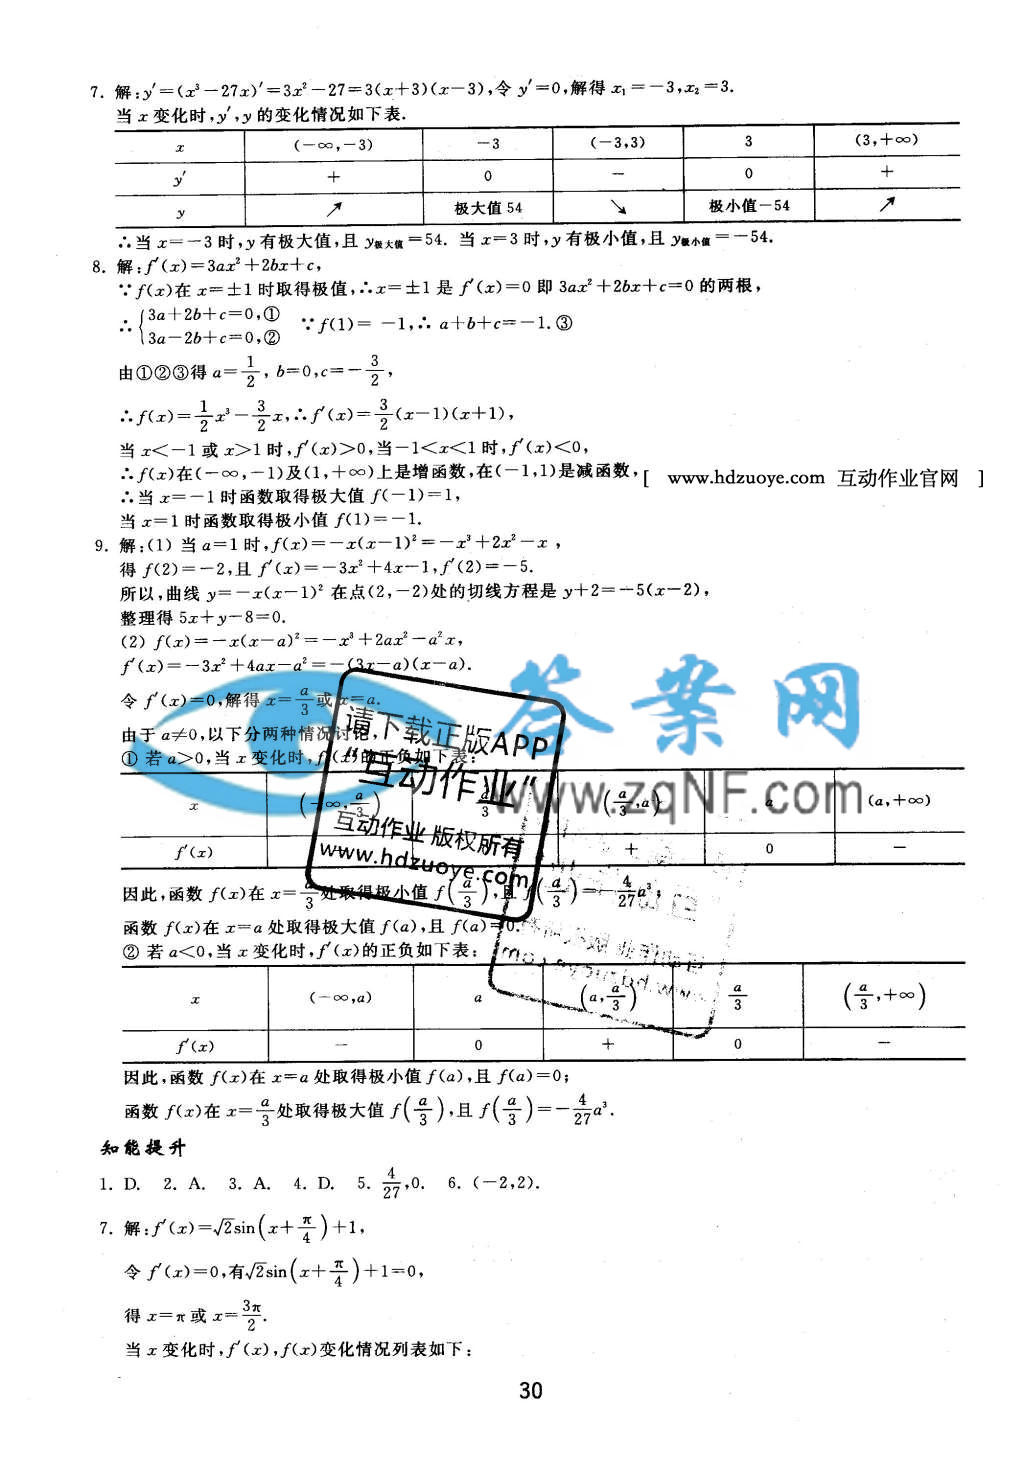 7. 解:y′=(x³-27x)′=3x²-27=3(x+3)(x-3),令 y′=0,解得 x₁=-3,x₂=3.
当 x 变化时,y′,y 的变化情况如下表.
x (-∞,-3) -3 (-3,3) 3 (3,+∞)
y′ + 0 - 0 +
y ↗ 极大值 54 ↘ 极小值-54 ↗
∴当 x=-3 时,y 有极大值,且 y极大值=54. 当 x=3 时,y 有极小值,且 y极小值=-54.
8. 解:f′(x)=3ax²+2bx+c,
∵f(x)在 x=±1 时取得极值,∴x=±1 是 f′(x)=0 即 3ax²+2bx+c=0 的两根,
∴{3a+2b+c=0,① 3a-2b+c=0,② ∵f(1)= -1,∴ a+b+c=-1.③
由①②③得 a=1/2, b=0,c=-3/2,
∴f(x)=1/2x³-3/2x,∴f′(x)=3/2(x-1)(x+1),
当 x<-1 或 x>1 时,f′(x)>0,当-1<x<1 时,f′(x)<0,
∴f(x)在(-∞,-1)及(1,+∞)上是增函数,在(-1,1)是减函数,[ www.hdzuoye.com 互动作业官网 ]
∴当 x=-1 时函数取得极大值 f(-1)=1,
当 x=1 时函数取得极小值 f(1)=-1.
9. 解:(1) 当 a=1 时,f(x)=-x(x-1)²=-x³+2x²-x ,
得 f(2)=-2,且 f′(x)=-3x²+4x-1,f′(2)=-5.
所以,曲线 y=-x(x-1)² 在点(2,-2)处的切线方程是 y+2=-5(x-2),
整理得 5x+y-8=0.
(2) f(x)=-x(x-a)²=-x³+2ax²-a²x,
f′(x)=-3x²+4ax-a²=-(3x-a)(x-a).
令 f′(x)=0,解得 x=a/3或 x=a.
由于 a≠0,以下分两种情况讨论,
① 若 a>0,当 x 变化时,f′(x)的正负如下表:
答案网
www.zqNF.com
请下载正版APP
“互动作业”
互动作业 版权所有
www.hdzuoye.com
x (-∞,a/3) a/3 (a/3,a) a (a,+∞)
f′(x) + 0 -
因此,函数 f(x)在 x=a/3处取得极小值 f(a/3),且 f(a/3)=-4/27a³;
函数 f(x)在 x=a 处取得极大值 f(a),且 f(a)=0.
② 若 a<0,当 x 变化时,f′(x)的正负如下表:
x (-∞,a) a (a,a/3) a/3 (a/3,+∞)
f′(x) - 0 + 0 -
因此,函数 f(x)在 x=a 处取得极小值 f(a),且 f(a)=0;
函数 f(x)在 x=a/3处取得极大值 f(a/3),且 f(a/3)=-4/27a³.
知能提升
1. D. 2. A. 3. A. 4. D. 5. 4/27,0. 6. (-2,2).
7. 解:f′(x)=√2sin(x+π/4)+1,
令 f′(x)=0,有√2sin(x+π/4)+1=0,
得 x=π 或 x=3π/2.
当 x 变化时,f′(x),f(x)变化情况列表如下:
30